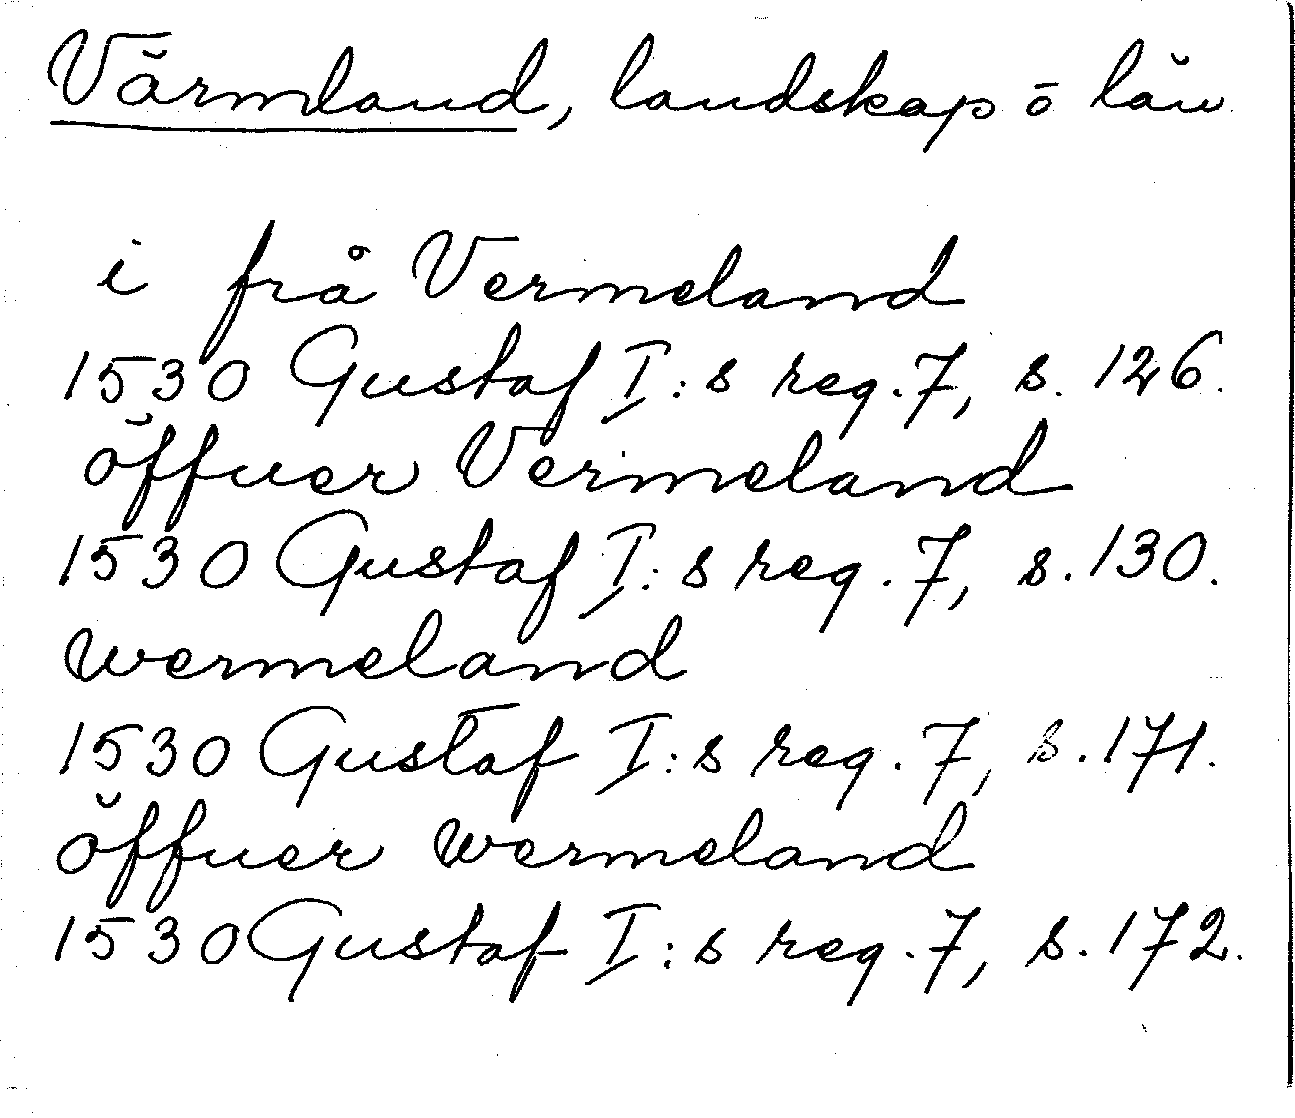 Värmland, landskap o län
i frå Vermeland
1530 Gustaf I:s reg. 7, s. 126.
öffuer Vermeland
1530 Gustaf I:s reg. 7, s. 130.
wermeland
1530 Gustaf I:s reg. 7, s. 171.
öffuer wermeland
1530 Gustaf I:s reg. 7, s. 172.